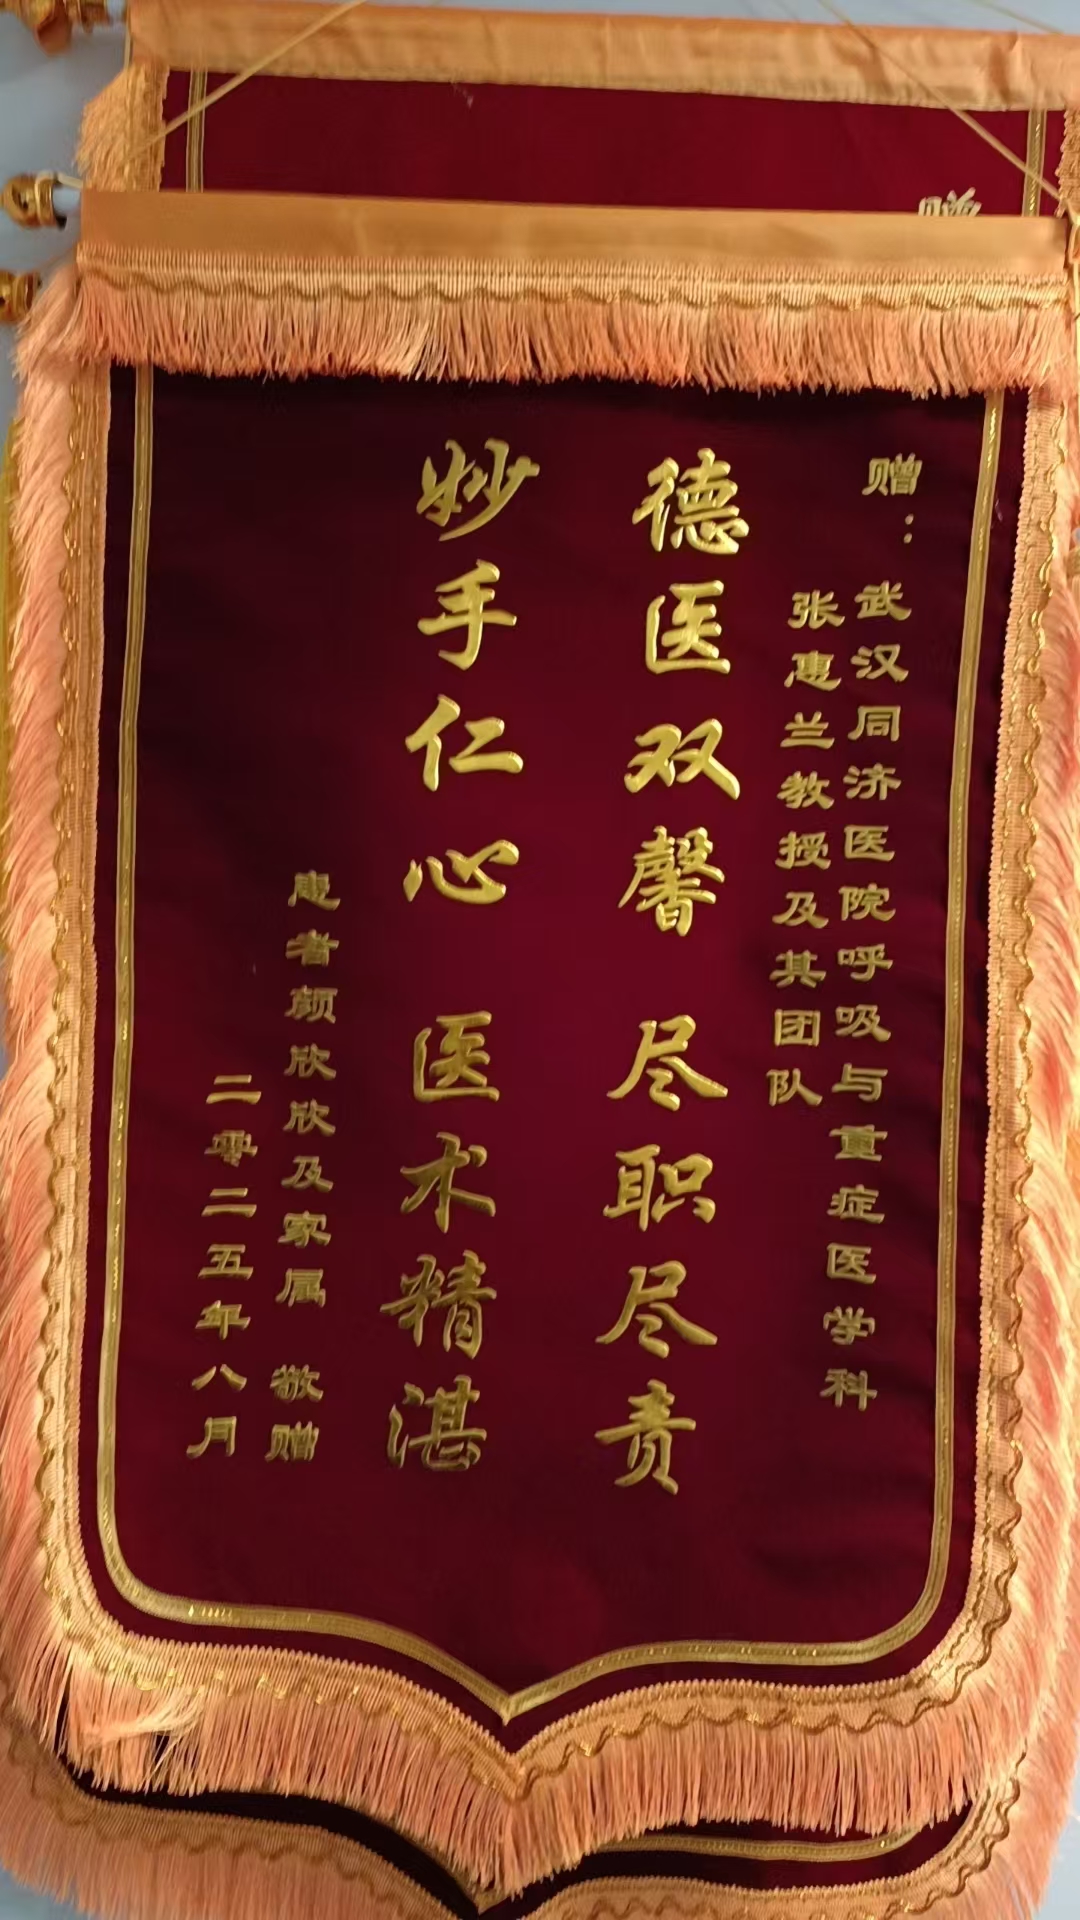 赠
赠：武汉同济医院呼吸与重症医学科
张惠兰教授及其团队
德医双馨 尽职尽责
妙手仁心 医术精湛
患者颜欣欣及家属 敬赠
二零二五年八月